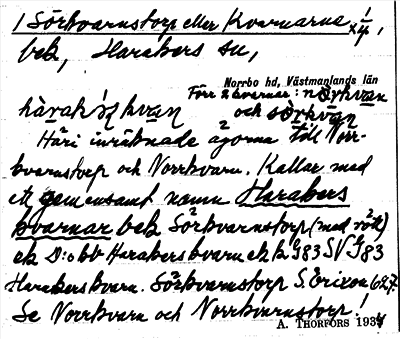 1 Sörkvarnstorp eller Kvarnarna x 1/4,
bek, Harakers sn,
Norrbo hd, Västmanlands län
Förr 2 kvarnar: nòrkvan
hàrak kvan och sòrkvan
Häri inräknade ägorna till Norr-
kvarnstorp och Norrkvarn. Kallar med
ett gemensamt namn Harakers
kvarnar bek Sörkvarnstorp (med rätt)
ek D:o bb Harakerskvarn ek k G83 SV G83
Harakerskvarn. Sörkvarnstorp S. Erixon 627.
Se Norrkvarn och Norrkvarnstorp!
A. THORFORS 1934